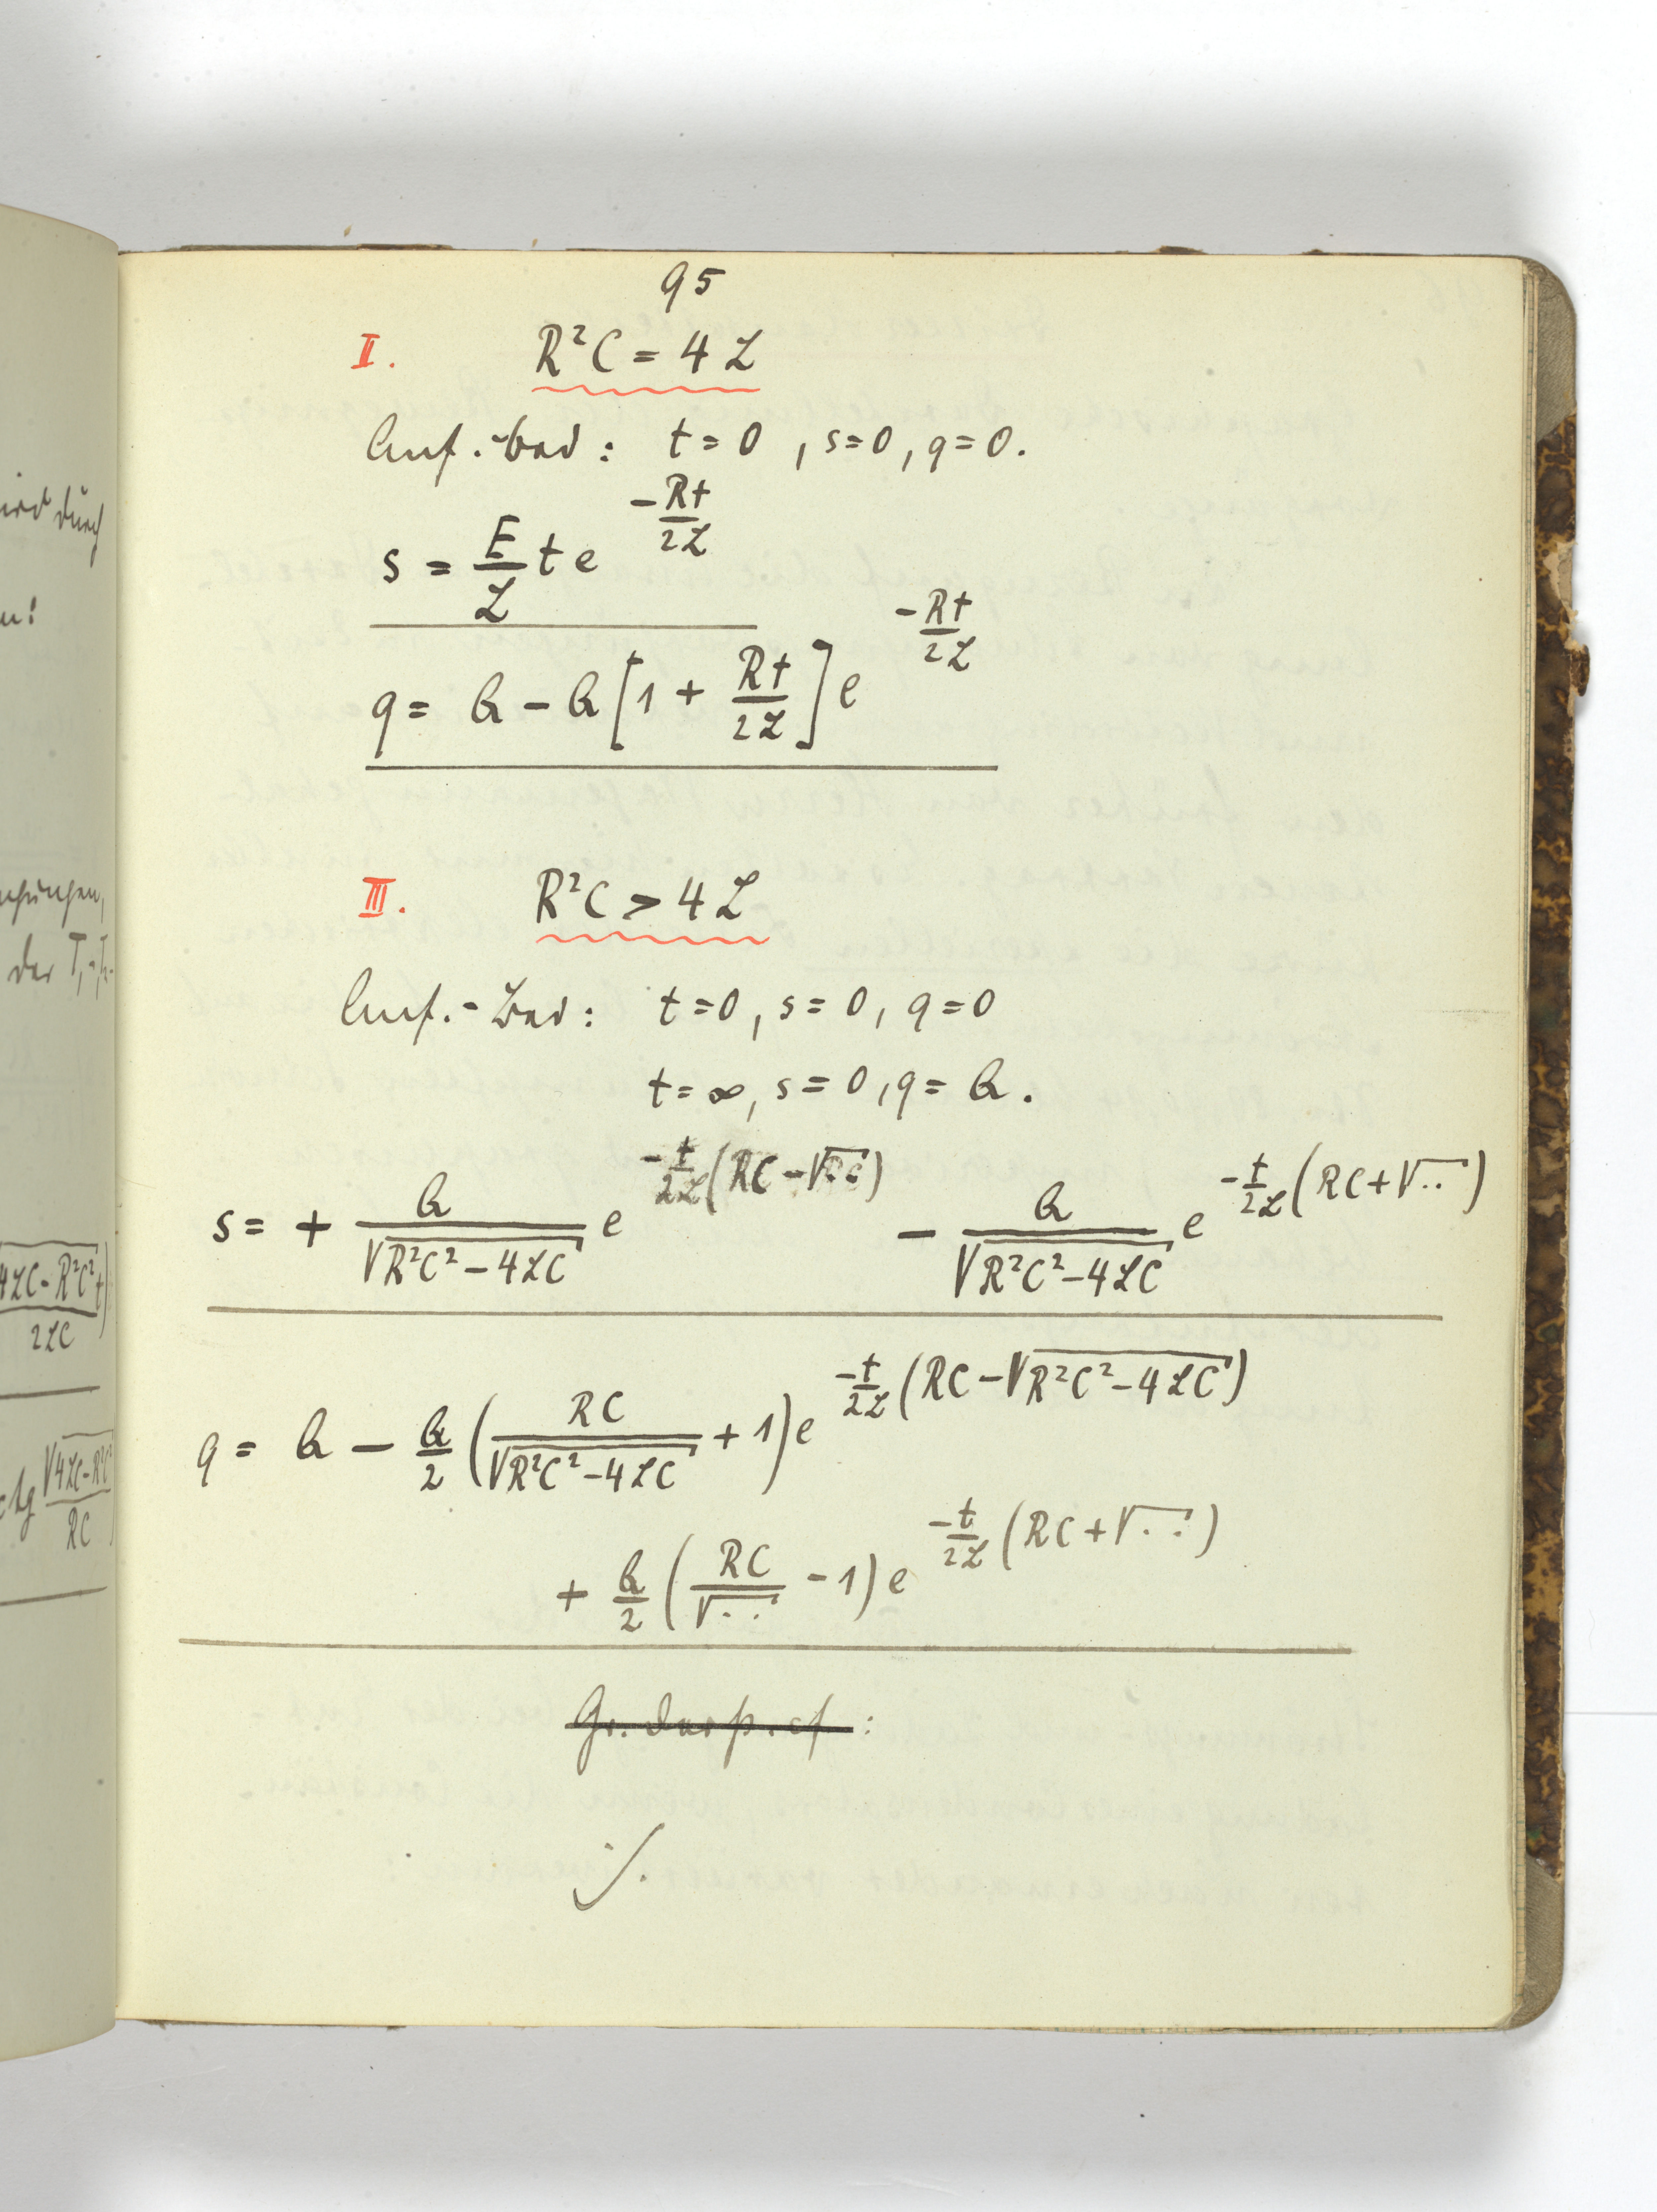 95
II. R²C = 4L
Anf.-Bed: t=0, s=0, q=0.
s = E/L t e^(-Rt/2L)
q = Q - Q[1 + Rt/2L] e^(-Rt/2L)
III. R²C > 4L
Anf.-Bed: t=0, s=0, q=0
t=∞, s=0, q=Q.
s = + Q/√(R²C²-4LC) e^(-t/2L (RC-√..)) - Q/√(R²C²-4LC) e^(-t/2L (RC+√..))
q = Q - Q/2 (RC/√(R²C²-4LC) + 1) e^(-t/2L (RC-√(R²C²-4LC)))
+ Q/2 (RC/√.. - 1) e^(-t/2L (RC+√..))
./.
wird durch
der T₁-T₂-
4LC-R²C² t
2LC
tg √4LC-R²C²
RC